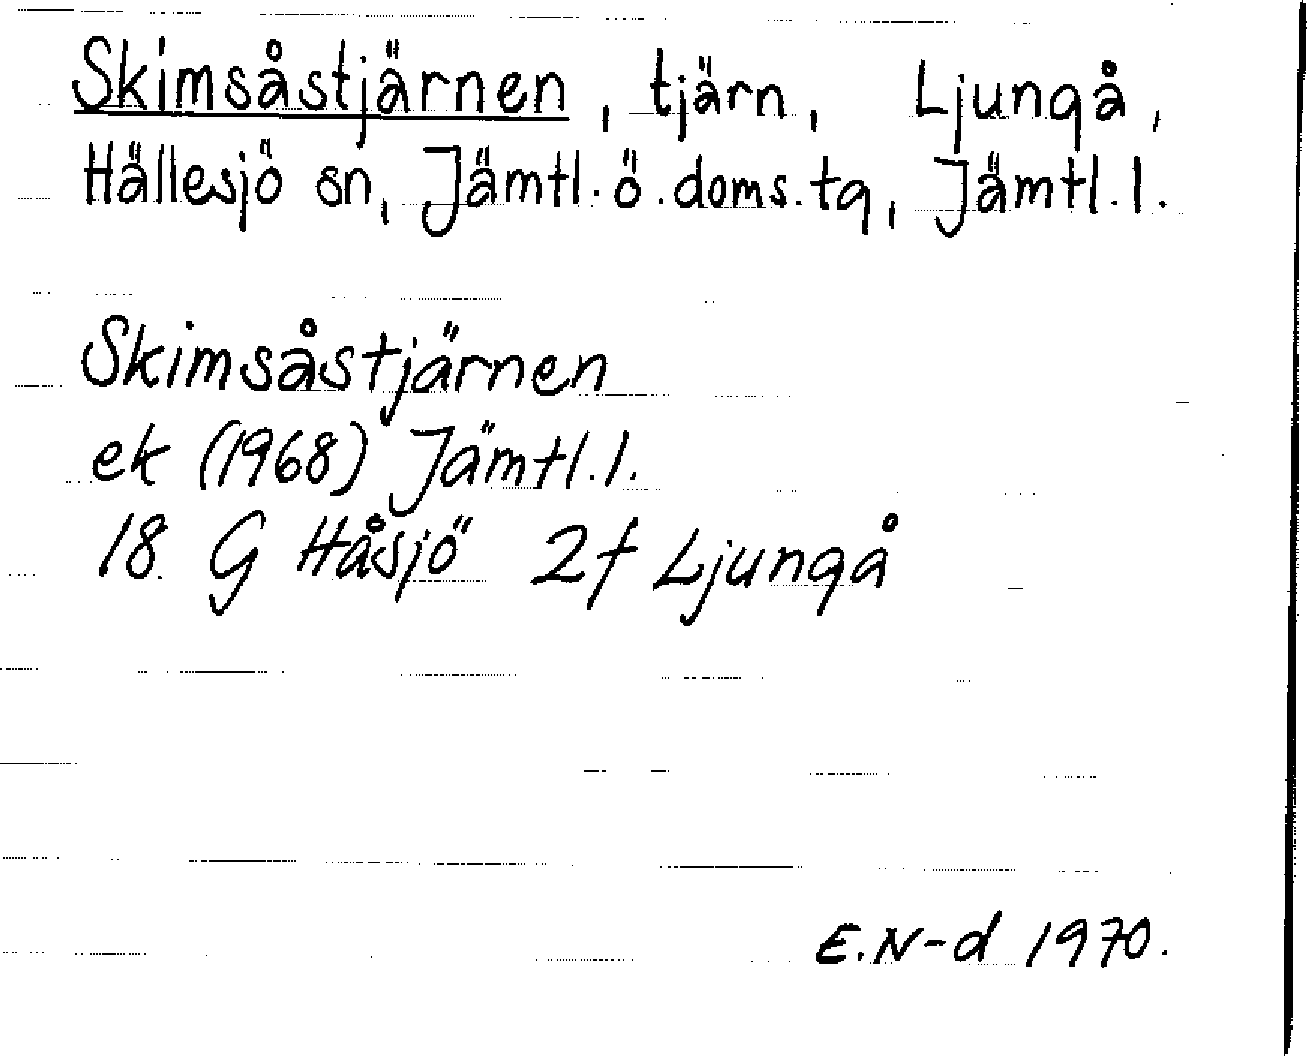 Skimsåstjärnen, tjärn, Ljungå,
Hällesjö sn, Jämtl. ö. doms. tg, Jämtl. l.
Skimsåstjärnen
ek (1968) Jämtl. l.
18 G Håsjö 2f Ljungå
E. N-d 1970.